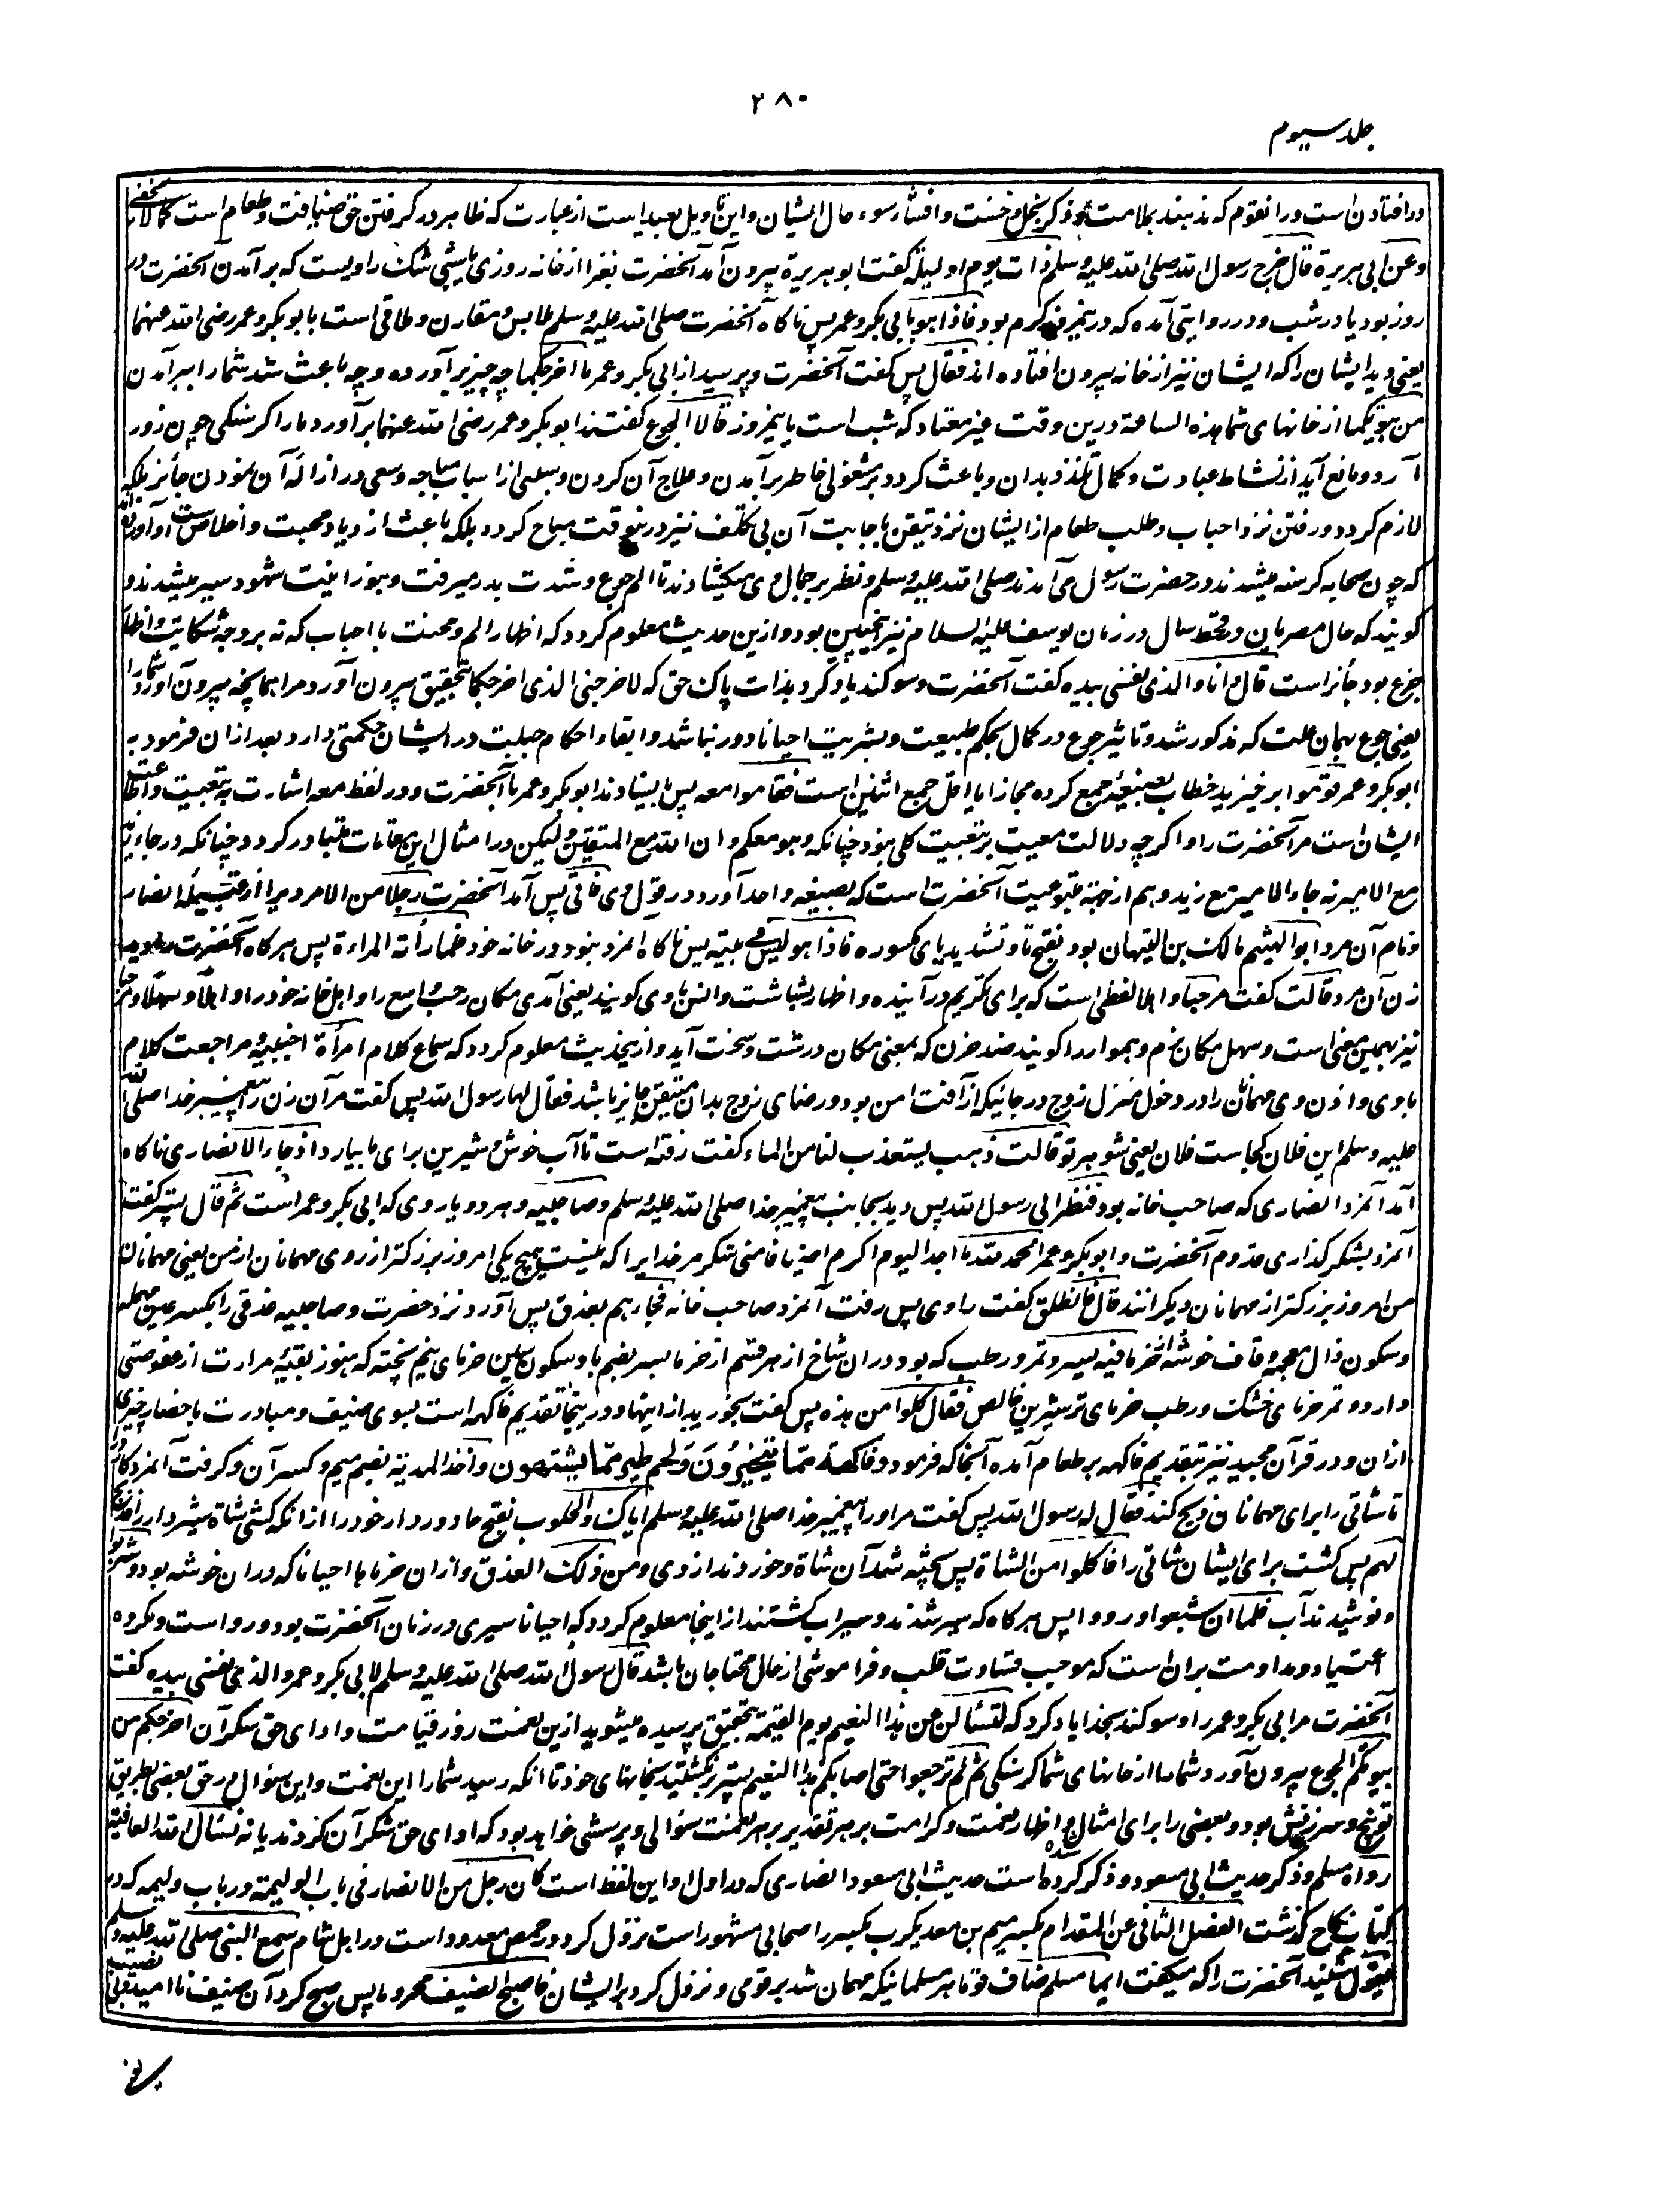 ۲۸۰
جلد سیوم
در افتادن است در انقوم که ندهند بملامت و ذکر بخل و خست و افشاء سوء حال ایشان و این تاویل بعید است از عبارت که ظاهر در گرفتن حق ضیافت و طعام است کما لا یخفی
و عن ابی هریرة قال خرج رسول الله صلی الله علیه وسلم ذات یوم او لیلة گفت ابو هریرة بیرون آمد آنحضرت نغرا از خانه روزی یا شبی شک راویست که برآمدن آنحضرت در
روز بود یا در شب و در روایتی آمده که در نیمروز گرم بود فاذا هو بابی بکر و عمر پس ناگاه آنحضرت صلی الله علیه وسلم ملابس و مقارن و ملاقی است بابو بکر و عمر رضی الله عنهما
یعنی دید ایشان را که ایشان نیز از خانه بیرون افتاده اند فقال پس گفت آنحضرت و پرسید از ابی بکر و عمر ما اخرجکما چه چیز برآورده و چه باعث شد شما را ببرآمدن
من بیوتکما از خانهای شما هذه الساعة درین وقت غیر معتاد که شب است یا نیمروز قالا الجوع گفتند ابو بکر و عمر رضی الله عنهما برآورد ما را گرسنگی چون زور
آرد و مانع آید از نشاط عبادت و کمال تلذذ بدان و باعث گردد بر مشغولی خاطر برآمدن و علاج آن کردن و سببی از اسباب مباحه وسعی در ازالهٔ آن نمودن جائز بلکه
لازم گردد و رفتن نزد احباب و طلب طعام از ایشان نزد تیقن باجابت آن بی تکلف نیز درینوقت مباح گردد بلکه باعث ازدیاد محبت و اخلاص است و آورده اند
که چون صحابه گرسنه میشدند در حضرت رسول می آمدند صلی الله علیه وسلم و نظر بر جمال وی میکشادند تا الم جوع و شدت بدر میرفت و بنورانیت شهود سیر میشدند و
گویند که حال مصریان در قحط سال در زمان یوسف علیه السلام نیز همچنین بود و ازین حدیث معلوم گردد که اظهار الم و محنت با احباب که نه بر وجه شکایت و اظهار
جزع بود جائز است قال و انا والذی نفسی بیده گفت آنحضرت و سوگند یاد کرد بذات پاک حق که لاخرجنی الذی اخرجکما بتحقیق بیرون آورد مرا همانچه بیرون آورد شما را
یعنی جوع بهمان علت که مذکور شد و تاثیر جوع در کمال بحکم طبیعت و بشریت احیانا دور نباشد و ابقاء احکام جبلت در ایشان حکمتی دارد بعد ازان فرمود به
ابوبکر و عمر قوموا برخیزید خطاب بصیغهٔ جمع کرده مجازا یا اقل جمع اثنین است فقاموا معه پس بایستادند ابوبکر و عمر با آنحضرت و در لفظ معه اشارت بتبعیت و اطاعت
ایشان است مر آنحضرت را و اگرچه دلالت معیت بر تبعیت کلی نبود چنانکه و هو معکم و ان الله مع المتقین و لیکن در امثال این مقامات متبادر گردد چنانکه در جاء زید
مع الامیر نه جاء الامیر مع زید و هم از جهة متبوعیت آنحضرت است که بصیغه واحد آورد در قول وی فاتی پس آمد آنحضرت رجلا من الانصار مردیرا از قبیلهٔ انصار
و نام آن مرد ابو الهیثم مالک بن التیهان بود بفتح تا و تشدید یای مکسوره فاذا هو لیس فی بیته پس ناگاه آنمرد نبود در خانه خود فلما رأته المراءة پس هرگاه آنحضرت را دید
زن آن مرد قالت گفت مرحبا و اهلا لفظی است که برای تکریم در آینده و اظهار بشاشت و انس باوی گویند یعنی آمدی مکان رحب واسع را و اهل خانه خود را و اهلا و سهلا و مرحبا
نیز بهمین معنی است و سهل مکان نرم و هموار را گویند ضد حزن که بمعنی مکان درشت و سخت آید و ازینحدیث معلوم گردد که سماع کلام امرأة اجنبیه و مراجعت کلام
باوی و اذن وی مهمان را در دخول منزل زوج در جائیکه از آفت امن بود و رضای زوج بدان متیقن جایز باشد فقال لها رسول الله پس گفت مر آن زن را پیغمبر خدا صلی الله
علیه وسلم این فلان کجاست فلان یعنی شوهر تو قالت ذهب یستعذب لنا من الماء گفت رفته است تا آب خوش و شیرین برای ما بیارد اذ جاء الانصاری ناگاه
آمد آنمرد انصاری که صاحب خانه بود فنظر الی رسول الله پس دید بجانب پیغمبر خدا صلی الله علیه وسلم و صاحبیه و هر دو یار وی که ابی بکر و عمر است ثم قال پستر گفت
آنمرد بشکرگذاری قدوم آنحضرت و ابوبکر و عمر الحمد لله ما احد الیوم اکرم اضیافا منی شکر مر خدایرا که نیست هیچ یکی امروز بزرگتر از روی مهمانان از من یعنی مهمانان
من امروز بزرگتر از مهمانان دیگرانند قال فانطلق گفت راوی پس رفت آنمرد صاحب خانه فجاءهم بعذق پس آورد نزد حضرت و صاحبیه عذقی را بکسر عین مهمله
و سکون ذال معجمه و قاف خوشه از خرما فیه بسر و تمر و رطب که بود دران شاخ از هر قسم از خرما بسر بضم با و سکون سین خرمای نیم پخته که هنوز بقیهٔ مرارت از عفوصتی
دارد و تمر خرمای خشک و رطب خرمای تر شیرین خالص فقال کلوا من هذه پس گفت بخورید ازینها و درینجا تقدیم فاکهه است بسوی ضیف و مبادرت باحضار چیزی
ازان و در قرآن مجید نیز تقدیم فاکهه بر طعام آمده آنجا که فرمود و فاکهة مما یتخیرون ولحم طیر مما یشتهون و اخذ المدیة بضم میم و کسر آن و گرفت آنمرد کارد را
تا شاتی را برای مهمانان ذبح کند فقال له رسول الله پس گفت مر او را پیغمبر خدا صلی الله علیه وسلم ایاک و الحلوب بفتح حا دور دار خود را ازانکه کشی شاة شیردار را فذبح
لهم پس کشت برای ایشان شاتی را فاکلوا من الشاة پس پخته شد آن شاة و خوردند از وی و من ذلک العذق و ازان خرماها احیانا که دران خوشه بود و شربوا
و نوشیدند آب فلما ان شبعوا و رووا پس هرگاه که سیر شدند و سیراب گشتند ازینجا معلوم گردد که احیانا سیری در زمان آنحضرت بود و روا است و مکروه
اعتیاد و مداومت بران است که موجب قساوت قلب و فراموشی از حال محتاجان باشد قال رسول الله صلی الله علیه وسلم لابی بکر و عمر والذی نفسی بیده گفت
آنحضرت مر ابی بکر و عمر را و سوگند بخدا یاد کرد که لتسئلن عن هذا النعیم یوم القیمة بتحقیق پرسیده میشوید ازین نعمت روز قیامت و ادای حق شکر آن اخرجکم من
بیوتکم الجوع بیرون آورد شما را از خانهای شما گرسنگی ثم لم ترجعوا حتی اصابکم هذا النعیم پستر برنگشتید بخانهای خود تا آنکه رسید شما را این نعمت و این سؤال در حق بعضی بطریق
توبیخ و سرزنش بود و بعضی را برای امتنان و اظهار نعمت و کرامت بر هر تقدیر بر هر نعمت سؤالی و پرسشی خواهد بود که ادای حق شکر آن کردند یا نه نسأل الله العافیة
رواه مسلم و ذکر حدیث ابی مسعود و ذکر کرده شده است حدیث ابی مسعود انصاری که در اول او این لفظ است کان رجل من الانصار فی باب الولیمة در باب ولیمه که در
کتاب نکاح گذشت الفصل الثانی عن المقدام بکسر میم بن معدیکرب بکسر را صحابی مشهور است نزول کرد در حمص معدود است در اهل شام سمع النبی صلی الله علیه وسلم
یقول شنید آنحضرت را که میگفت ایما مسلم ضاف قوما هر مسلمانیکه مهمان شد بر قومی و نزول کرد بر ایشان فاصبح الضیف محروما پس صبح کرد آن ضیف ناامید و بی نصیب